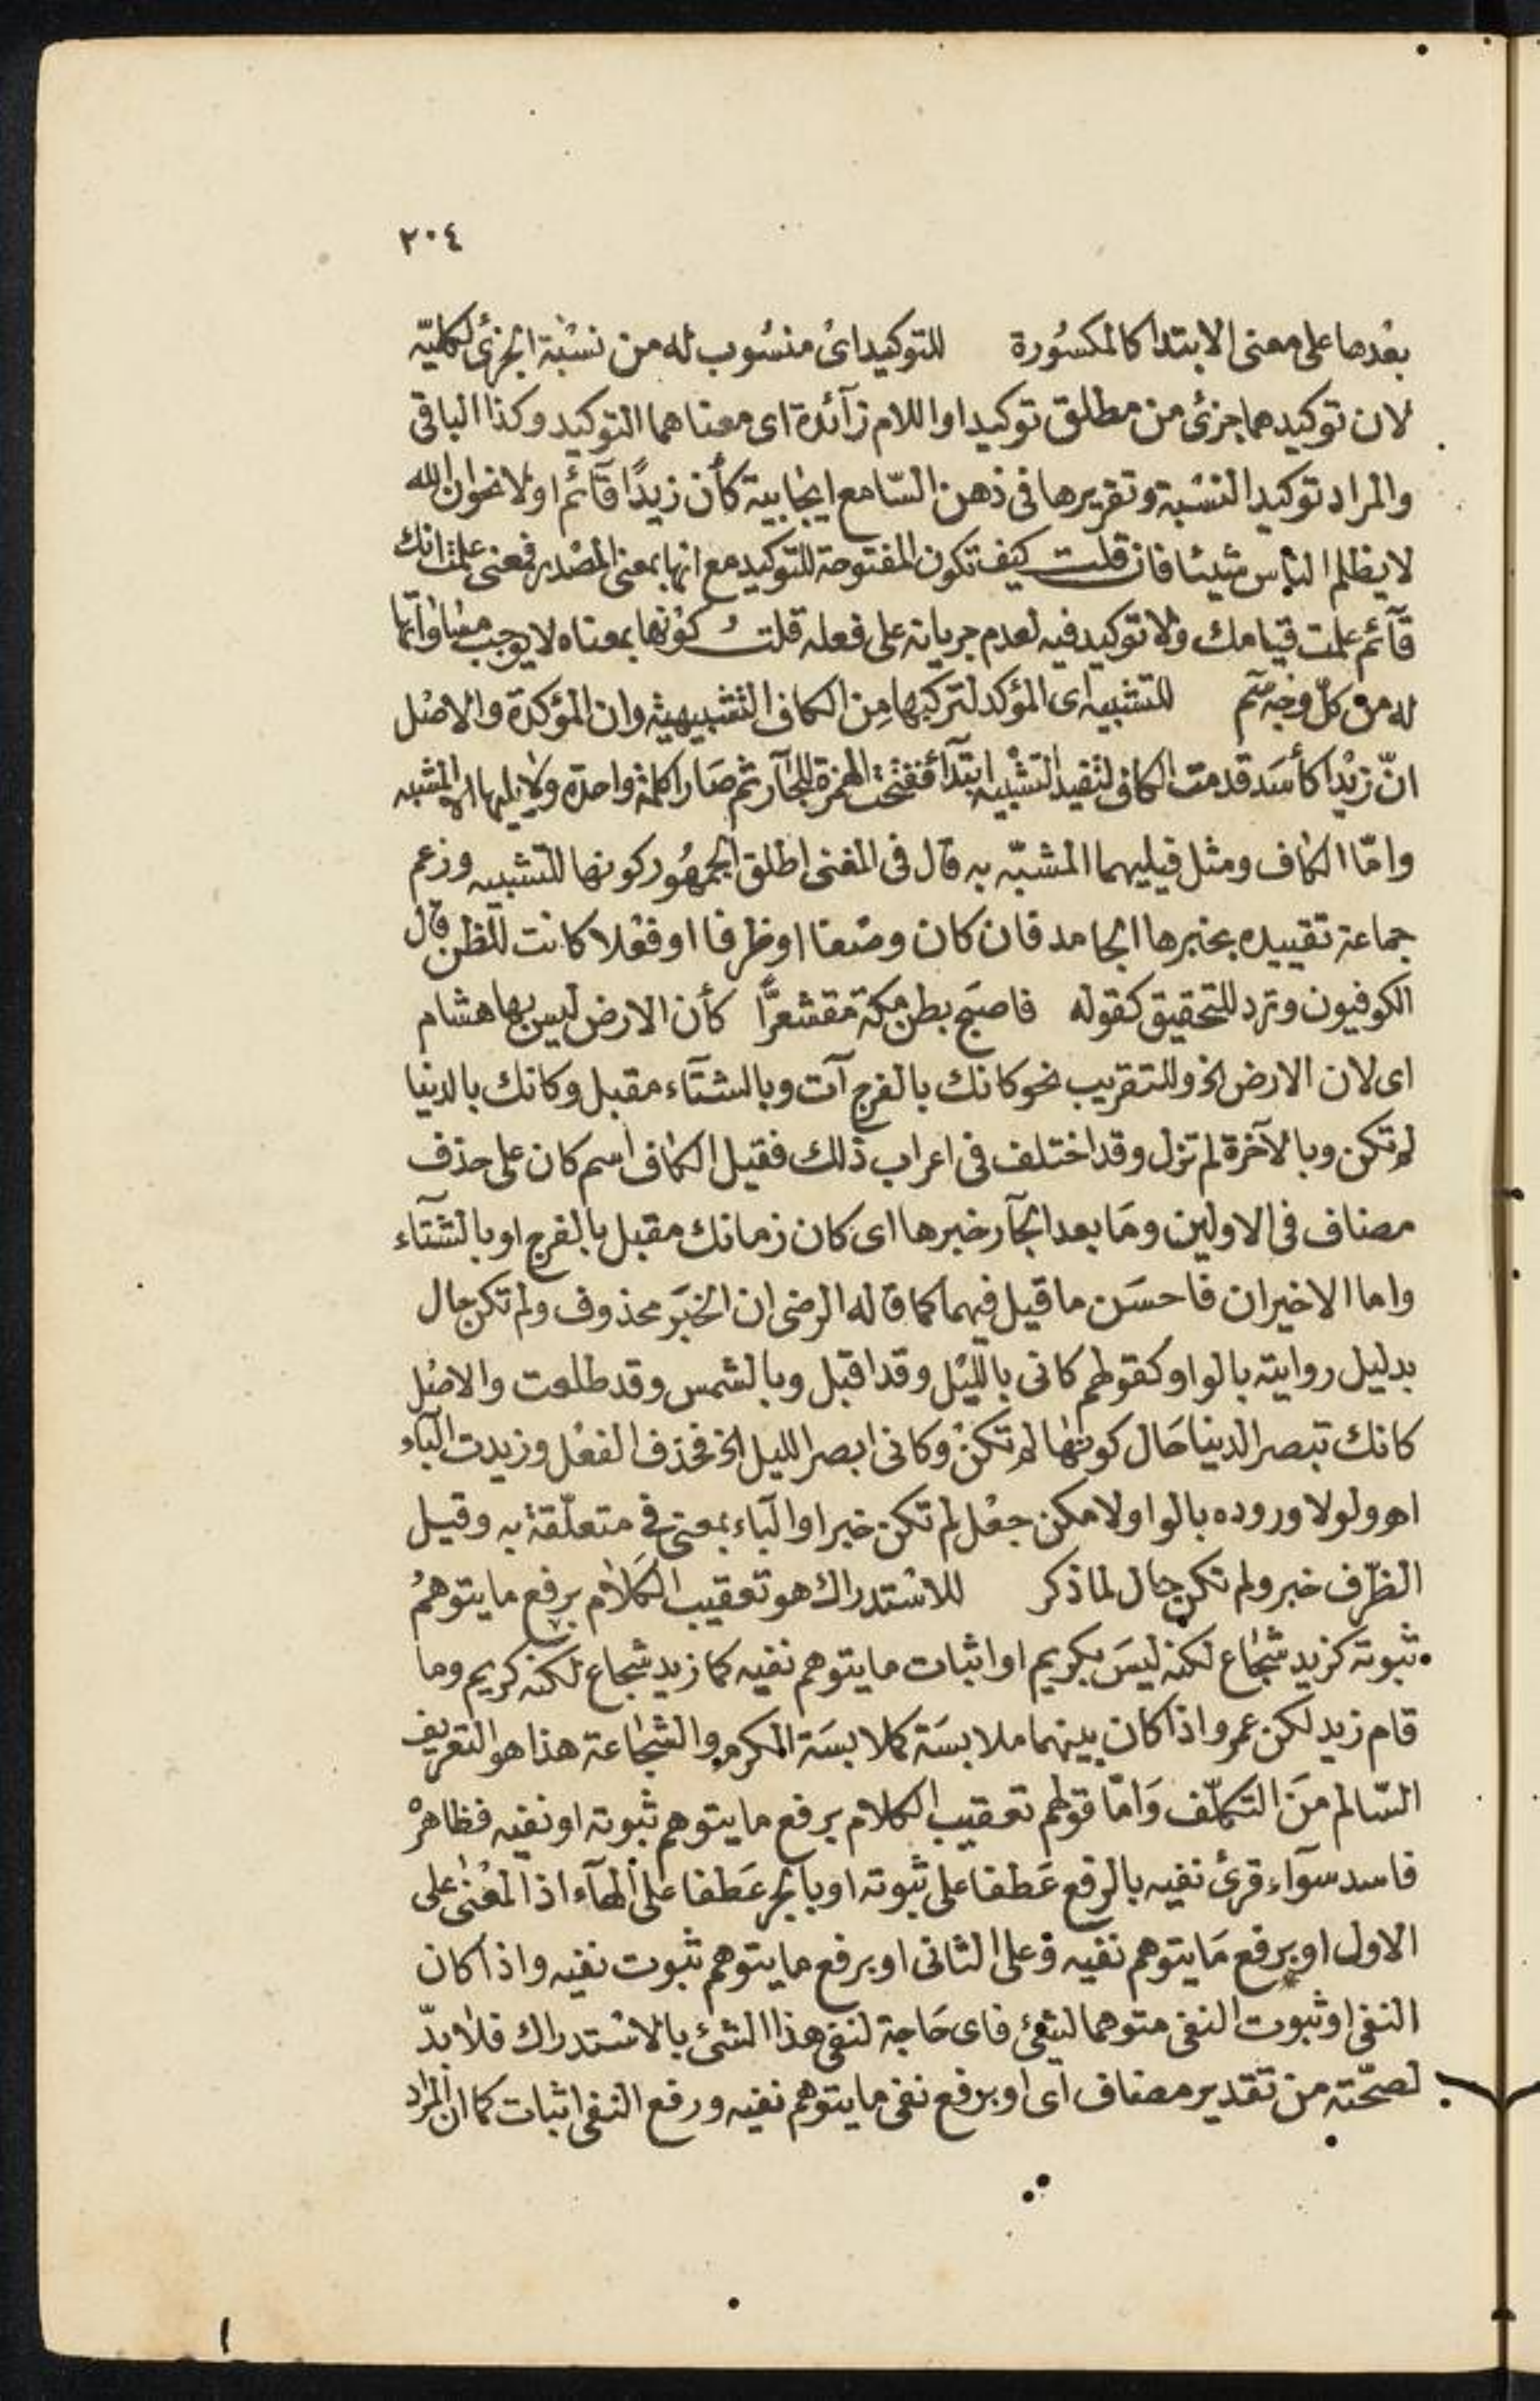 ٢٠٤
بعدها على معنى الابتدا كالمكسورة للتوكيد اى منسوب له من نسبة الجزئى لكليّه
لان توكيدهما جزئى من مطلق توكيد او اللام زآئدة اى معناهما التوكيد وكذا الباقى
والمراد توكيد النسبة وتقريرها فى ذهن السّامع ايجابية كأن زيدًا قآئم اولا نحو ان الله
لا يظلم الناس شيئا فان قلت كيف تكون المفتوحة للتوكيد مع انها بمعنى المصدر فمعنى علمت انك
قآئم علمت قيامك ولا توكيد فيه لعدم جريانه على فعله قلت كونها بمعناه لا يوجب مساواتها
له من كلّ وجه سم للتشبيه اى المؤكد لتركبها من الكاف التشبيهية وان المؤكدة والاصل
انّ زيدا كأسد قدمت الكاف لتفيد التشبيه ابتدآء ففتحت الهمزة للجآر ثم صارا كلمة واحدة ولا يليها الا المشبه
وامّا الكاف ومثل فيليهما المشبّه به قال فى المغنى اطلق الجمهور كونها للتشبيه وزعم
جماعة تقييده بخبرها الجامد فان كان وصفا او ظرفا او فعلا كانت للظن قال
الكوفيون وترد للتحقيق كقوله فاصبح بطن مكة مقشعرًّا كأن الارض ليس بها هشام
اى لان الارض الخ وللتقريب نحو كانك بالفرج آت وبالشتآء مقبل وكانك بالدنيا
لم تكن وبالآخرة لم تزل وقد اختلف فى اعراب ذلك فقيل الكاف اسم كان على حذف
مضاف فى الاولين وما بعد الجآر خبرها اى كان زمانك مقبل بالفرج او بالشتآء
واما الاخيران فاحسن ما قيل فيهما كما قاله الرضى ان الخبر محذوف ولم تكن حال
بدليل روايته بالواو كقولهم كانى بالليل وقد اقبل وبالشمس وقد طلعت والاصل
كانك تبصر الدنيا حال كونها لم تكن وكانى ابصر الليل الخ فحذف الفعل وزيدت البآء
اهـ ولولا وروده بالواو لامكن جعل لم تكن خبرا والبآء بمعنى فى متعلّقة به وقيل
الظرف خبر ولم تكن حال لما ذكر للاستدراك هو تعقيب الكلام برفع ما يتوهم
ثبوته كزيد شجاع لكنه ليس بكريم او اثبات ما يتوهم نفيه كما زيد شجاع لكنه كريم وما
قام زيد لكن عمرو اذا كان بينهما ملابسة كملابسة الكرم والشجاعة هذا هو التعريف
السّالم من التكلّف وامّا قولهم تعقيب الكلام برفع ما يتوهم ثبوته او نفيه فظاهره
فاسد سوآء قرئ نفيه بالرفع عطفا على ثبوته او بالجر عطفا على الهآء اذ المعنى على
الاول او برفع ما يتوهم نفيه وعلى الثانى او برفع ما يتوهم ثبوت نفيه واذا كان
النفى او ثبوت النفى متوهما لشئ فاى حاجة لنفى هذا الشئ بالاستدراك فلا بدّ
لصحّته من تقدير مضاف اى او برفع نفى ما يتوهم نفيه ورفع النفى اثبات كما ان المراد